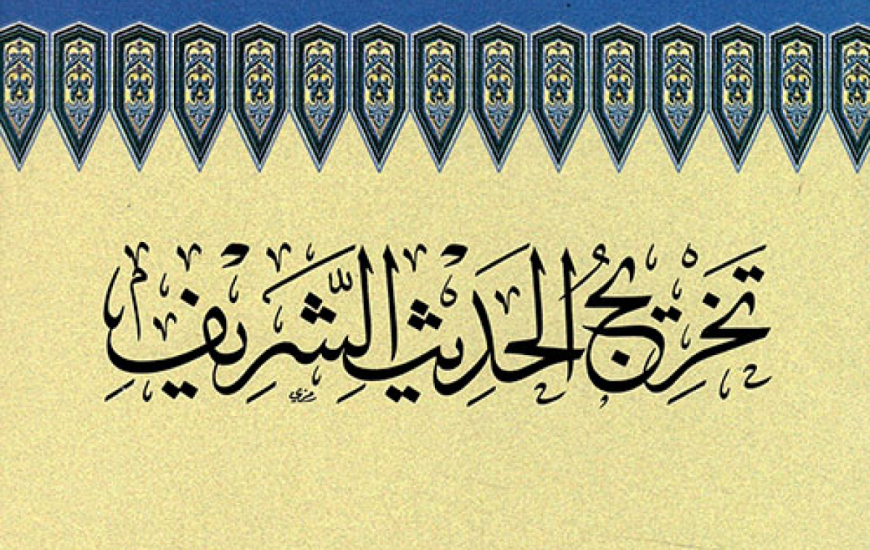 تَخْرِيجُ الحَدِيثِ الشَّرِيفِ